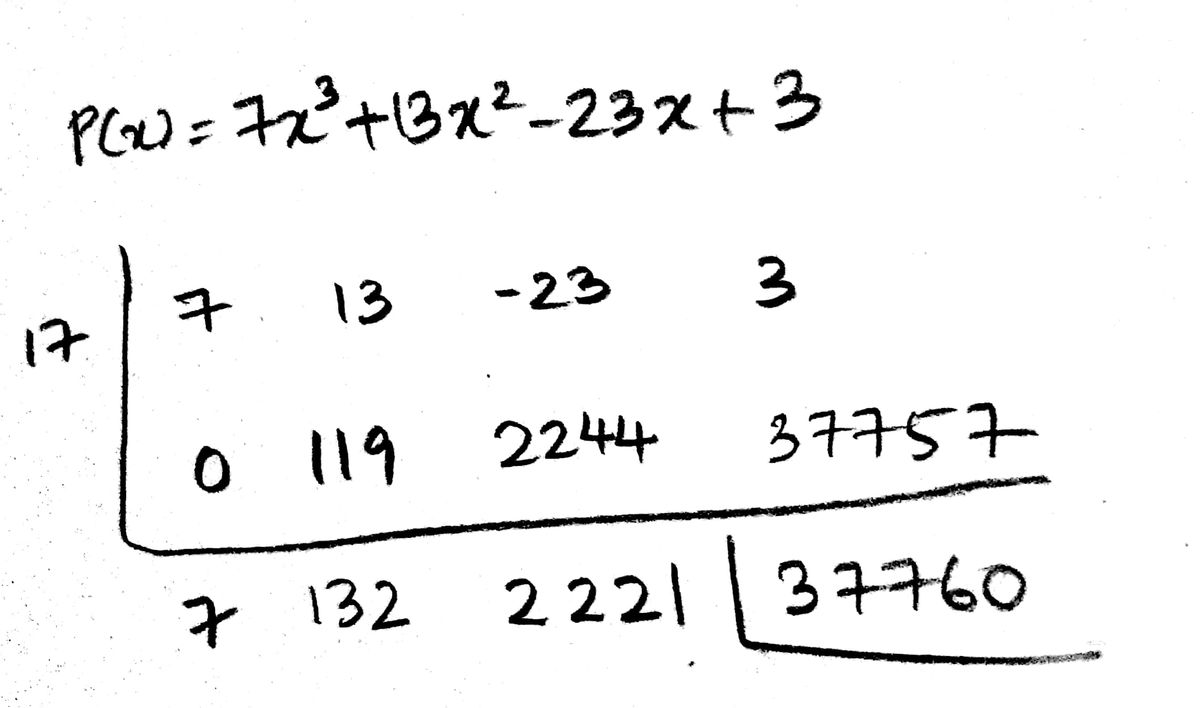 P(x) = 7x³ + 13x² - 23x + 3
7 13 -23 3
17
0 119 2244 37757
7 132 2221 37760